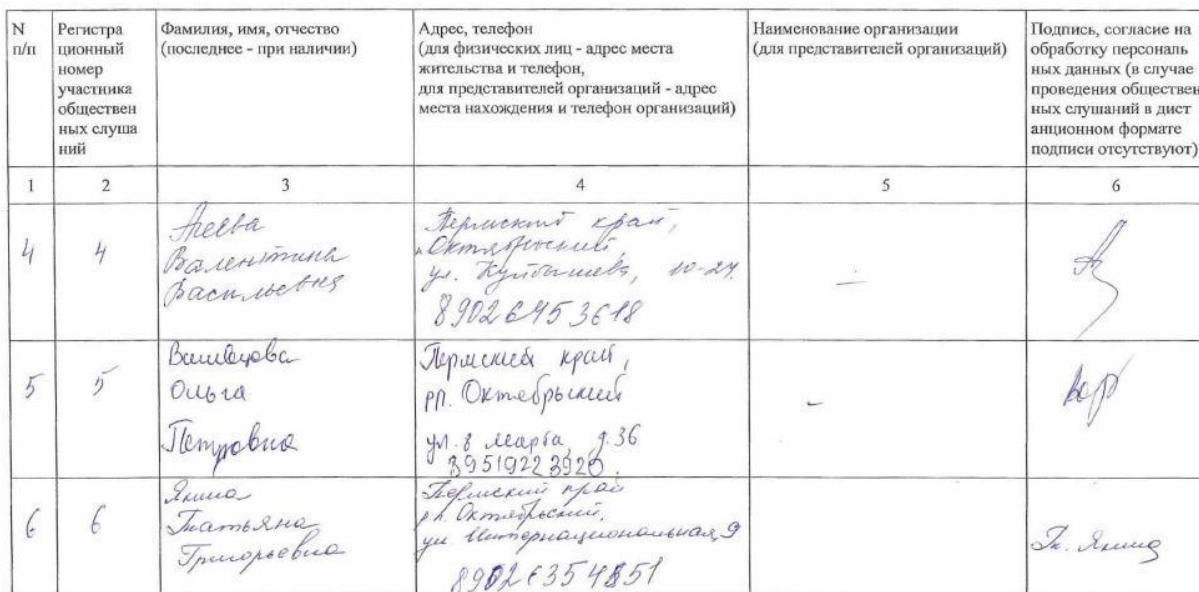 N п/п
Регистра
ционный
номер
участника
обществен
ных слуша
ний
Фамилия, имя, отчество
(последнее - при наличии)
Адрес, телефон
(для физических лиц - адрес места
жительства и телефон,
для представителей организаций - адрес
места нахождения и телефон организаций)
Наименование организации
(для представителей организаций)
Подпись, согласие на
обработку персональ
ных данных (в случае
проведения обществен
ных слушаний в дист
анционном формате
подписи отсутствуют)
1 2 3 4 5 6
4 4
Валентина
Васильевна
Пермский край,
Октябрьский,
ул. Куйбышева, 10-24.
89026453618
—
5 5
Ольга
Петровна
Пермский край,
рп. Октябрьский
ул. 8 марта, д.36
89519223920.
-
6 6
Янина
Татьяна
Григорьевна
Пермский край
рп. Октябрьский,
ул Интернациональная, 9
Тк. Янина